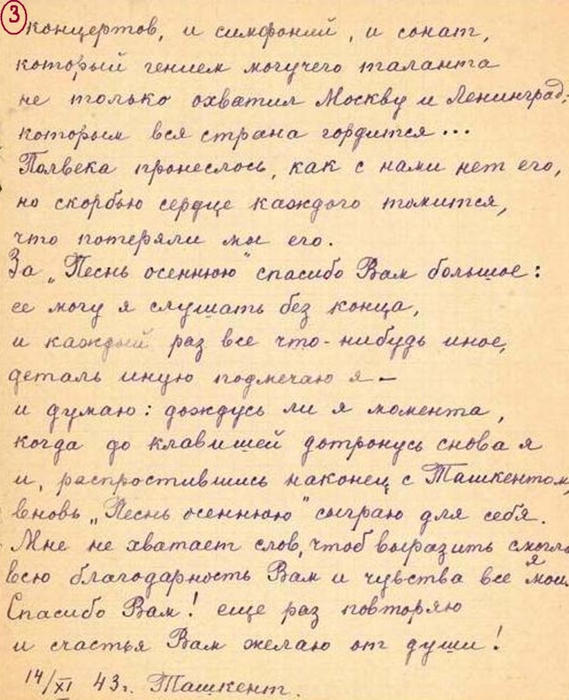 3
концертов, и симфоний, и сонат,
который гением могучего таланта
не только охватил Москву и Ленинград,
которым вся страна гордится...
Полвека пронеслось, как с нами нет его,
но скорбью сердце каждого томится,
что потеряли мы его.
За „Песнь осеннюю" спасибо Вам большое:
ее могу я слушать без конца,
и каждый раз все что-нибудь иное,
деталь иную подмечаю я —
и думаю: дождусь ли я момента,
когда до клавишей дотронусь снова я
и, распростившись наконец с Ташкентом,
вновь „Песнь осеннюю" сыграю для себя.
Мне не хватает слов, чтоб выразить смогла я
всю благодарность Вам и чувства все мои.
Спасибо Вам! еще раз повторяю
и счастья Вам желаю от души!
14/XI 43г. Ташкент.